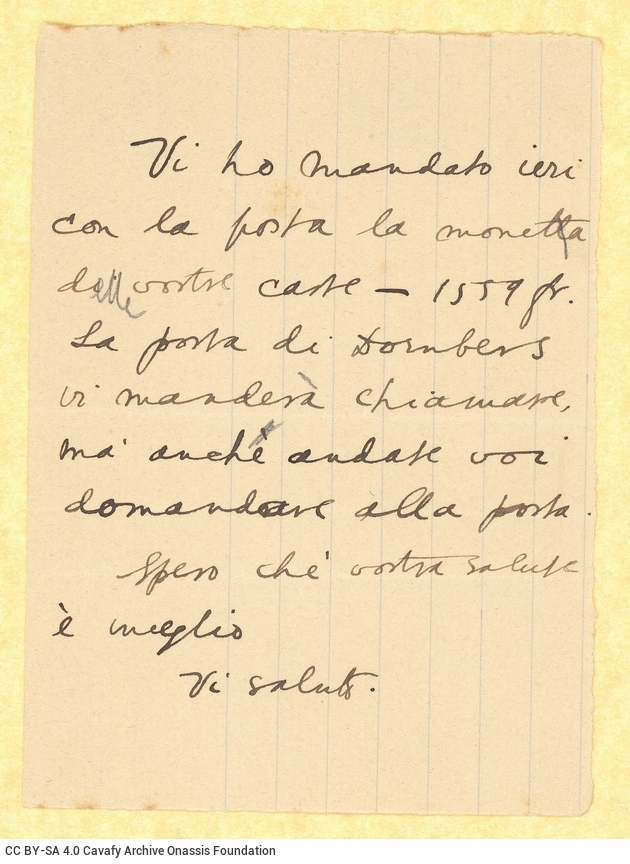 Vi ho mandato ieri
con la posta la monetta
delle vostre carte — 1559 fr.
La posta di Dornbers
vi manderà chiamare,
ma' anche andate voi
domandare alla posta.
Spero che' vostra salute
è meglio
Vi saluto.
CC BY-SA 4.0 Cavafy Archive Onassis Foundation